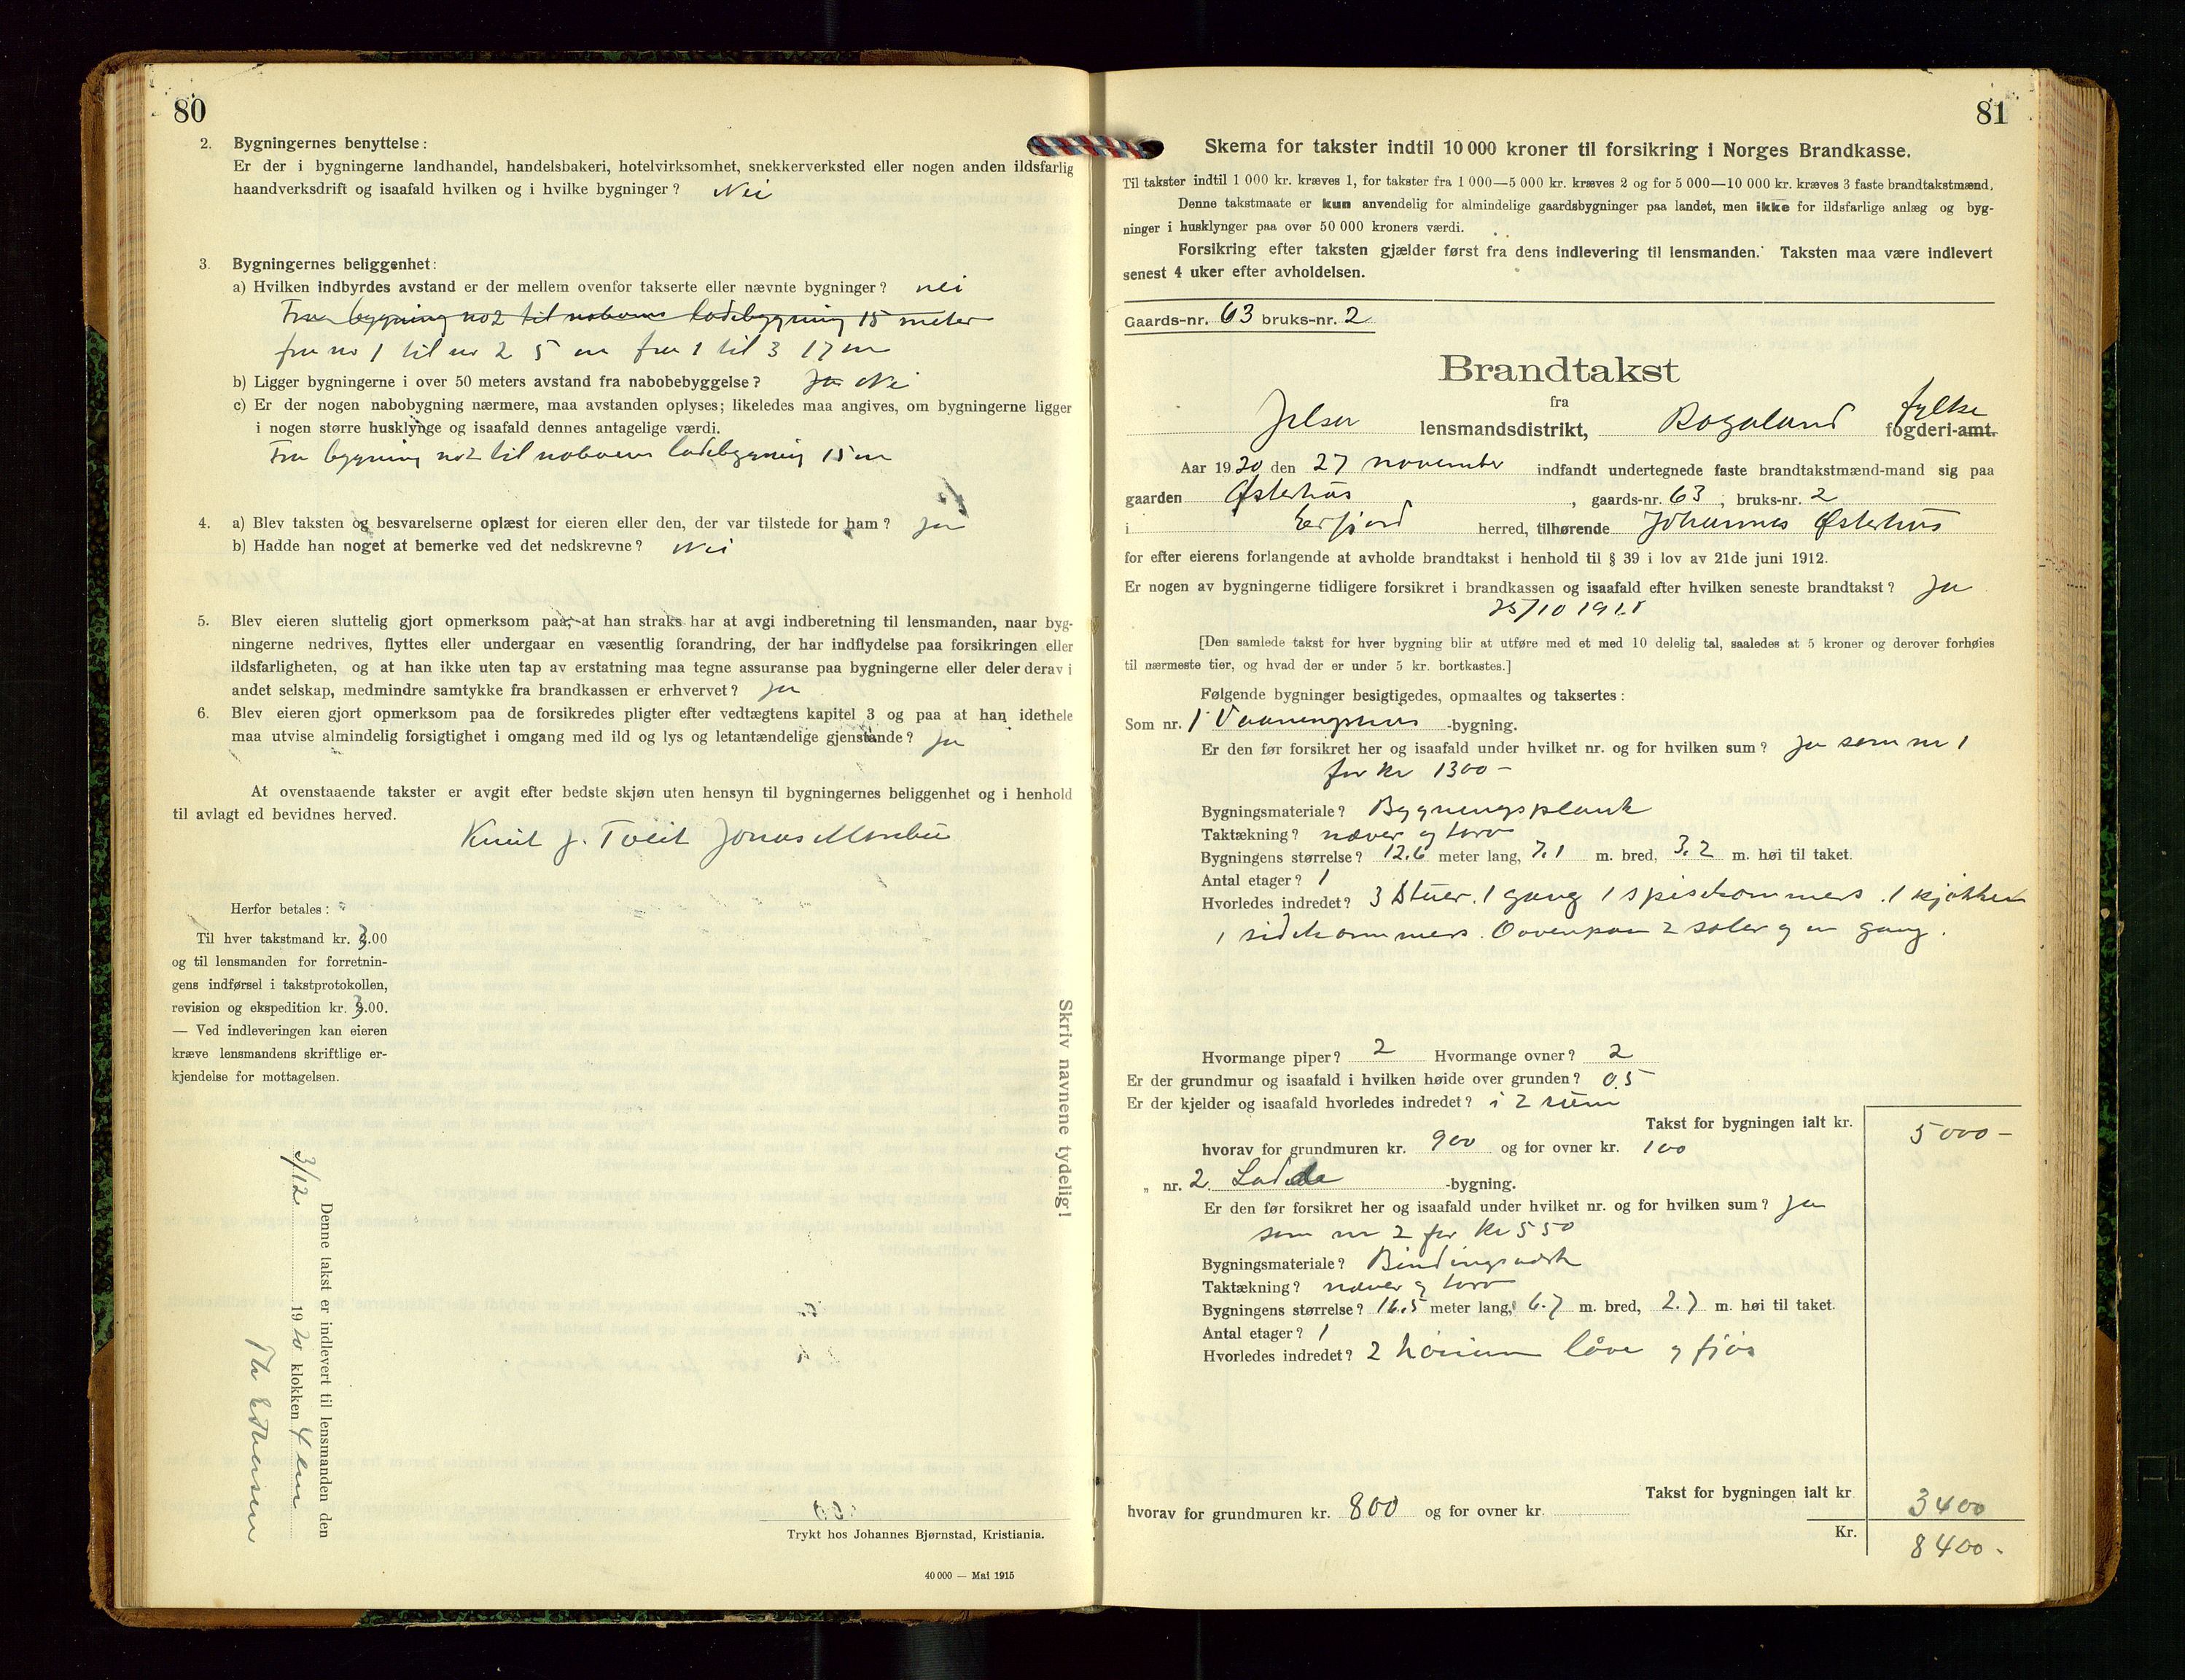 80
2. Bygningernes benyttelse:
Er der i bygningerne landhandel, handelsbakeri, hotelvirksomhet, snekkerverksted eller nogen anden ildsfarlig
haandverksdrift og isaafald hvilken og i hvilke bygninger? Nei
3. Bygningernes beliggenhet:
a) Hvilken indbyrdes avstand er der mellem ovenfor takserte eller nævnte bygninger? nei
Fra bygning no 2 til naboens ladebygning 15 meter
fra nr 1 til nr 2 5 m fra 1 til 3 17 m
b) Ligger bygningerne i over 50 meters avstand fra nabobebyggelse? Ja Nei
c) Er der nogen nabobygning nærmere, maa avstanden oplyses; likeledes maa angives, om bygningerne ligger
i nogen større husklynge og isaafald dennes antagelige værdi.
Fra bygning no 2 til naboens ladebygning 15 m
4. a) Blev taksten og besvarelserne oplæst for eieren eller den, der var tilstede for ham? Ja
b) Hadde han noget at bemerke ved det nedskrevne? Nei
5. Blev eieren sluttelig gjort opmerksom paa, at han straks har at avgi indberetning til lensmanden, naar byg-
ningerne nedrives, flyttes eller undergaar en væsentlig forandring, der har indflydelse paa forsikringen eller
ildsfarligheten, og at han ikke uten tap av erstatning maa tegne assuranse paa bygningerne eller deler derav i
andet selskap, medmindre samtykke fra brandkassen er erhvervet? Ja
6. Blev eieren gjort opmerksom paa de forsikredes pligter efter vedtægtens kapitel 3 og paa at han idethele
maa utvise almindelig forsigtighet i omgang med ild og lys og letantændelige gjenstande? Ja
At ovenstaaende takster er avgit efter bedste skjøn uten hensyn til bygningernes beliggenhet og i henhold
til avlagt ed bevidnes herved.
Knut J. Tveit Jonas
Herfor betales:
Til hver takstmand kr. 3.00
og til lensmanden for forretnin-
gens indførsel i takstprotokollen,
revision og ekspedition kr. 3.00.
— Ved indleveringen kan eieren
kræve lensmandens skriftlige er-
kjendelse for mottagelsen.
Denne takst er indlevert til lensmanden den
3/12 1920 klokken 4 em
Skriv navnene tydelig!
Trykt hos Johannes Bjørnstad, Kristiania.
40 000 — Mai 1915
81
Skema for takster indtil 10 000 kroner til forsikring i Norges Brandkasse.
Til takster indtil 1 000 kr. kræves 1, for takster fra 1 000—5 000 kr. kræves 2 og for 5 000—10 000 kr. kræves 3 faste brandtakstmænd.
Denne takstmaate er kun anvendelig for almindelige gaardsbygninger paa landet, men ikke for ildsfarlige anlæg og byg-
ninger i husklynger paa over 50 000 kroners værdi.
Forsikring efter taksten gjælder først fra dens indlevering til lensmanden. Taksten maa være indlevert
senest 4 uker efter avholdelsen.
Gaards-nr. 63 bruks-nr. 2
Brandtakst
fra
Jelsa lensmandsdistrikt, Rogaland fylke fogderi-amt.
Aar 1920 den 27 november indfandt undertegnede faste brandtakstmænd-mand sig paa
gaarden Østerhus, gaards-nr. 63, bruks-nr. 2
i Erfjord herred, tilhørende Johannes Østerhus
for efter eierens forlangende at avholde brandtakst i henhold til § 39 i lov av 21de juni 1912.
Er nogen av bygningerne tidligere forsikret i brandkassen og isaafald efter hvilken seneste brandtakst? Ja
[Den samlede takst for hver bygning blir at utføre med et med 10 delelig tal, saaledes at 5 kroner og derover forhøies
til nærmeste tier, og hvad der er under 5 kr. bortkastes.]
Følgende bygninger besigtigedes, opmaaltes og taksertes:
Som nr. 1 Vaaningshus -bygning.
Er den før forsikret her og isaafald under hvilket nr. og for hvilken sum? Ja som nr 1
for kr 1300 -
Bygningsmateriale? Bygningsplank
Taktækning? næver og torv
Bygningens størrelse? 12.6 meter lang, 7.1 m. bred, 3.2 m. høi til taket.
Antal etager? 1
Hvorledes indredet? 3 stuer. 1 gang 1 spisekammers. 1 kjøkken
1 sidekammers. Ovenpaa 2 saler og en gang.
Hvormange piper? 2 Hvormange ovner? 2
Er der grundmur og isaafald i hvilken høide over grunden? 0.5
Er der kjelder og isaafald hvorledes indredet? i 2 rum
Takst for bygningen ialt kr. 5000 -
hvorav for grundmuren kr. 900 og for ovner kr. 100
„ nr. 2 Lade -bygning.
Er den før forsikret her og isaafald under hvilket nr. og for hvilken sum? Ja
som nr 2 for kr 550
Bygningsmateriale? Bindingsverk
Taktækning? næver og torv
Bygningens størrelse? 16.5 meter lang, 6.7 m. bred, 2.7 m. høi til taket.
Antal etager? 1
Hvorledes indredet? 2 høirum låve og fjøs
Takst for bygningen ialt kr 3400
hvorav for grundmuren kr. 800 og for ovner kr.
Kr. 8400.